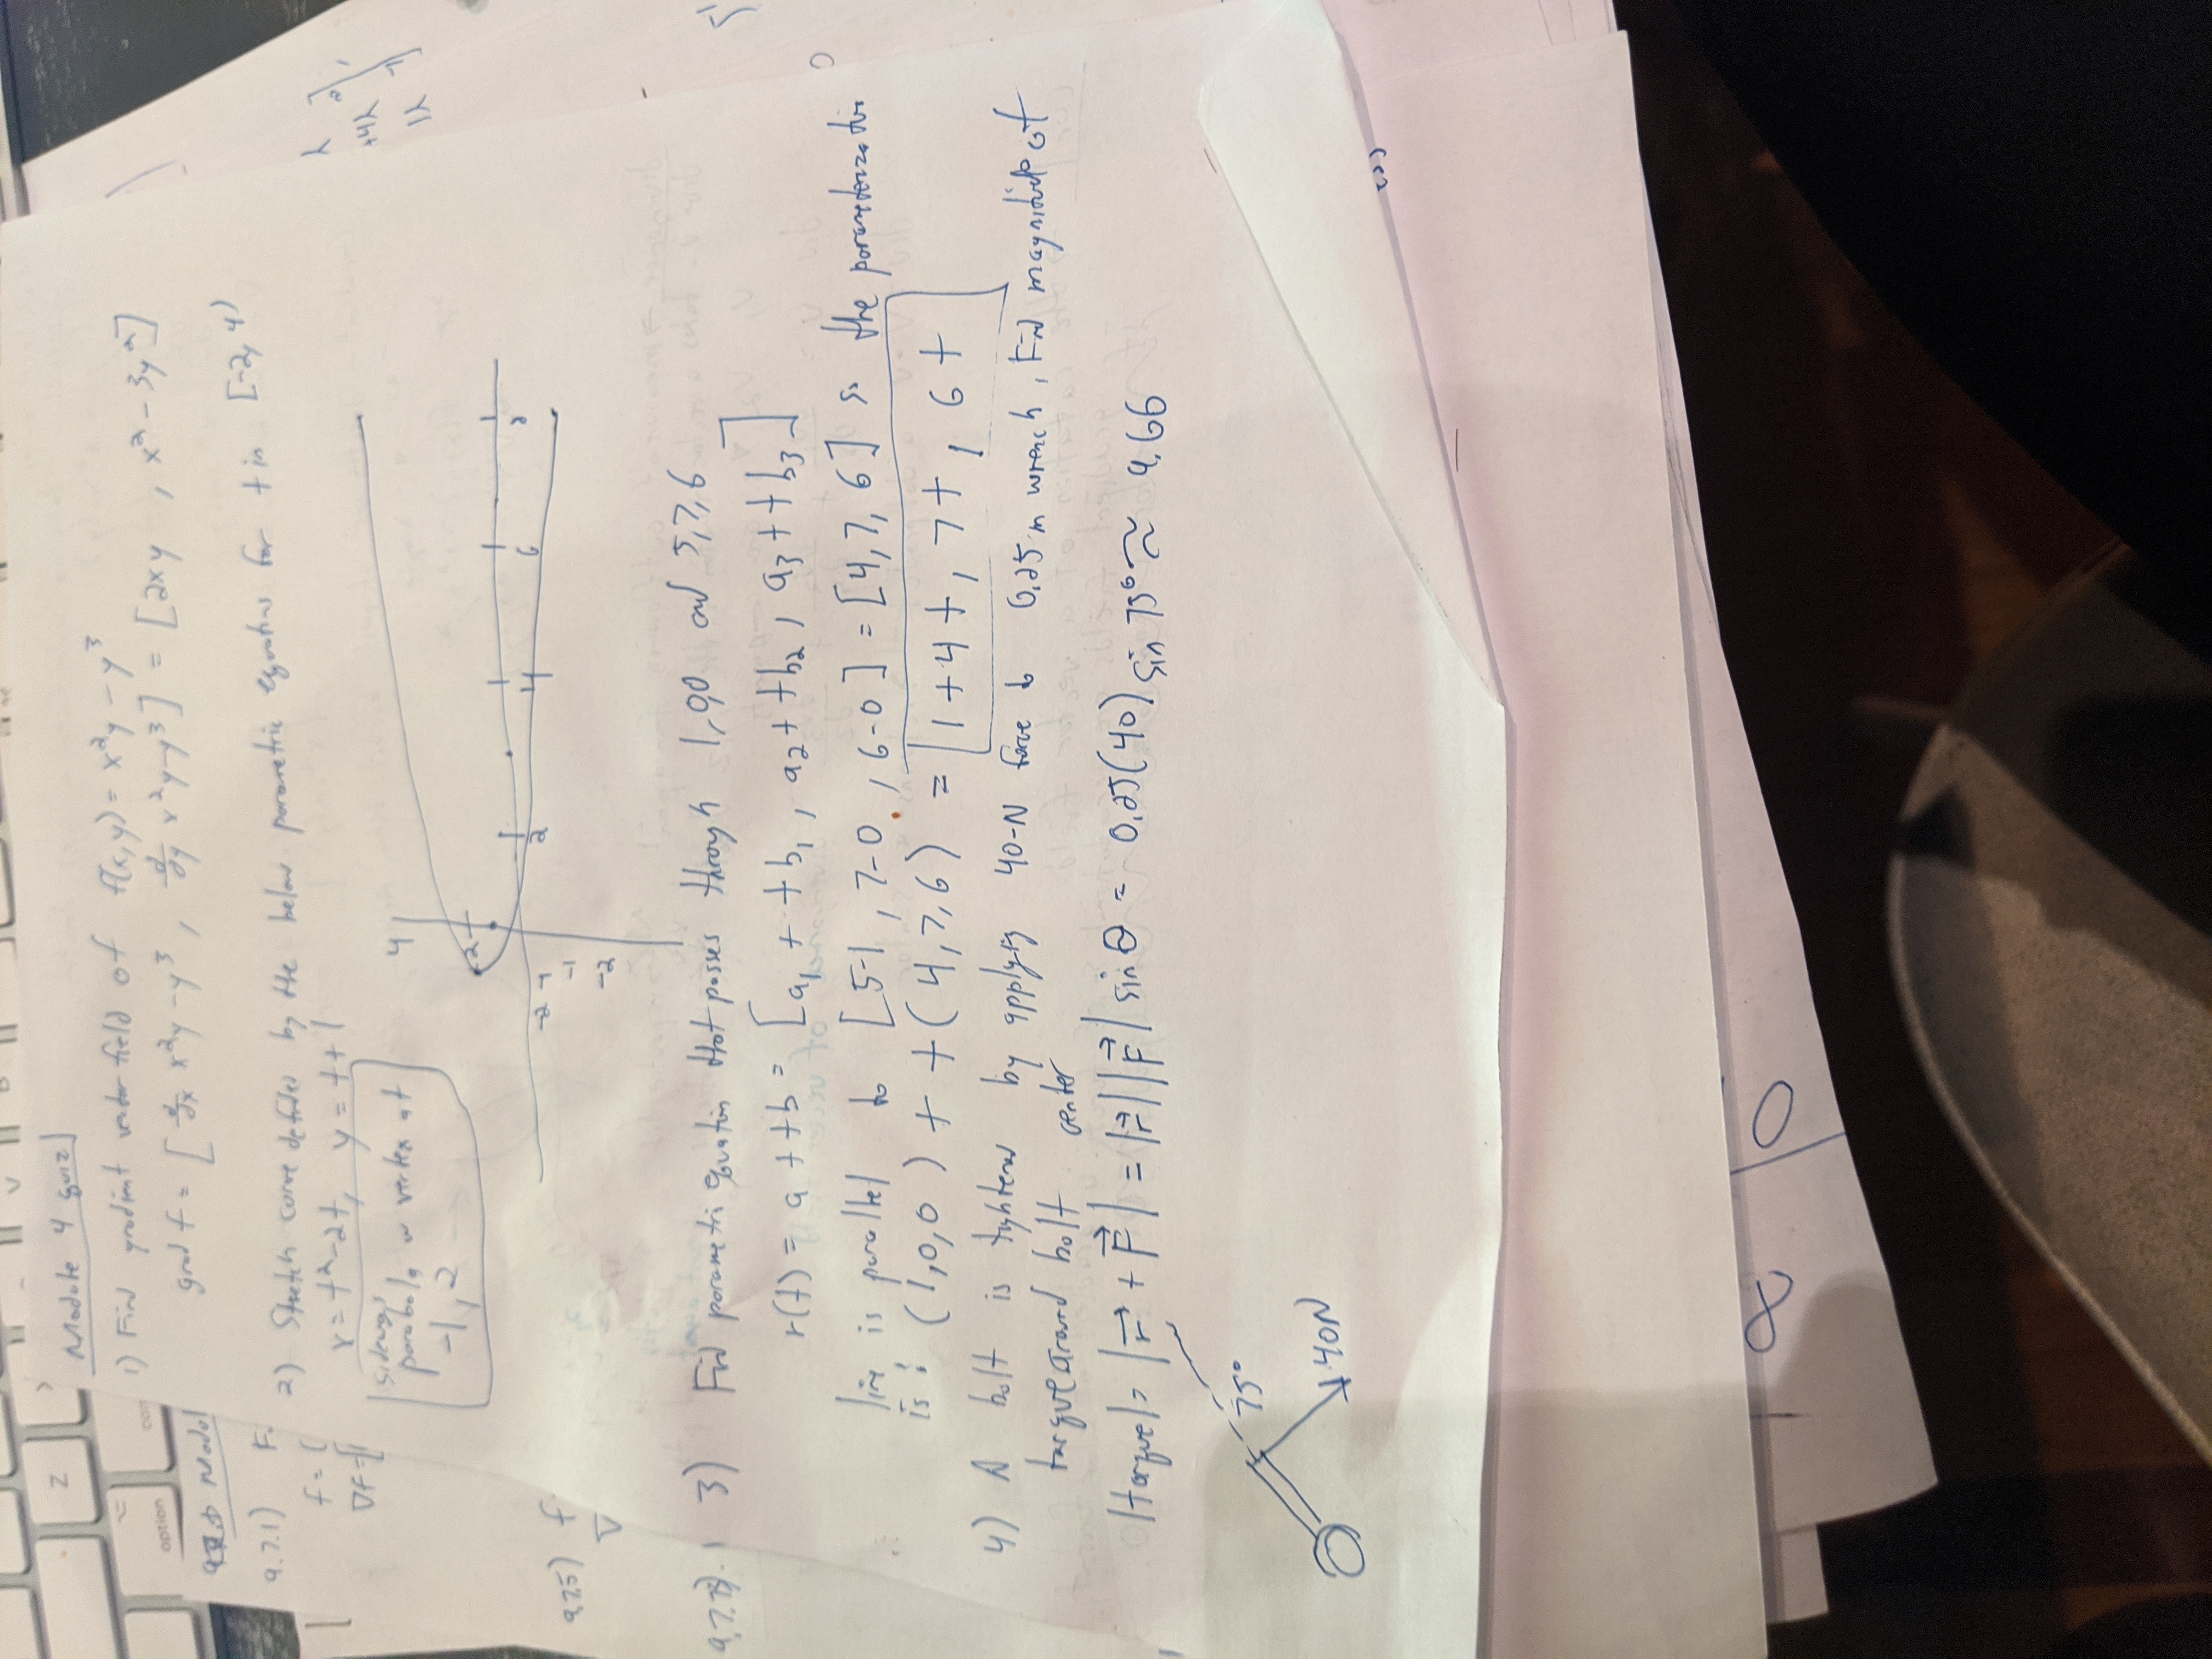 Z
option
con
Module 4 quiz
1) Find gradient vector field of f(x,y) = x²y - y³
grad f = [ ∂/∂x x²y - y³ , ∂/∂y x²y - y³ ] = [2xy , x² - 3y²]
2) Stretch curve defined by the below parametric equations for t in [-2, 4)
x = t² - 2t, y = t + 1
sideways
parabola w vertex at
-1, 2
4
2
-2 -1 2 4 6 8
-1
-2
3) Find parametri equation that passes through 1,0,0 and 5,7,6
r(t) = a + tb = [a₁ + tb₁, a₂ + tb₂, a₃ + tb₃]
line is parallel to [5-1, 7-0, 6-0] = [4,7,6] so the parameterization
is: (1,0,0) + t(4,7,6) = 1+4t, 7t, 6t
4) A bolt is tightened by applying 40-N force to 0.25m wrench, Find magnitude of
torque around bolt center
|torque| = |r⃗ + F⃗| = |r⃗||F⃗| sin θ = 0.25(40) sin 75° ≈ 9.66
75°
40N
Modul
9.7.1) F.
f = (
∇f = [
9.7.5) f
∇
λ
+4λ
1λ
8
0